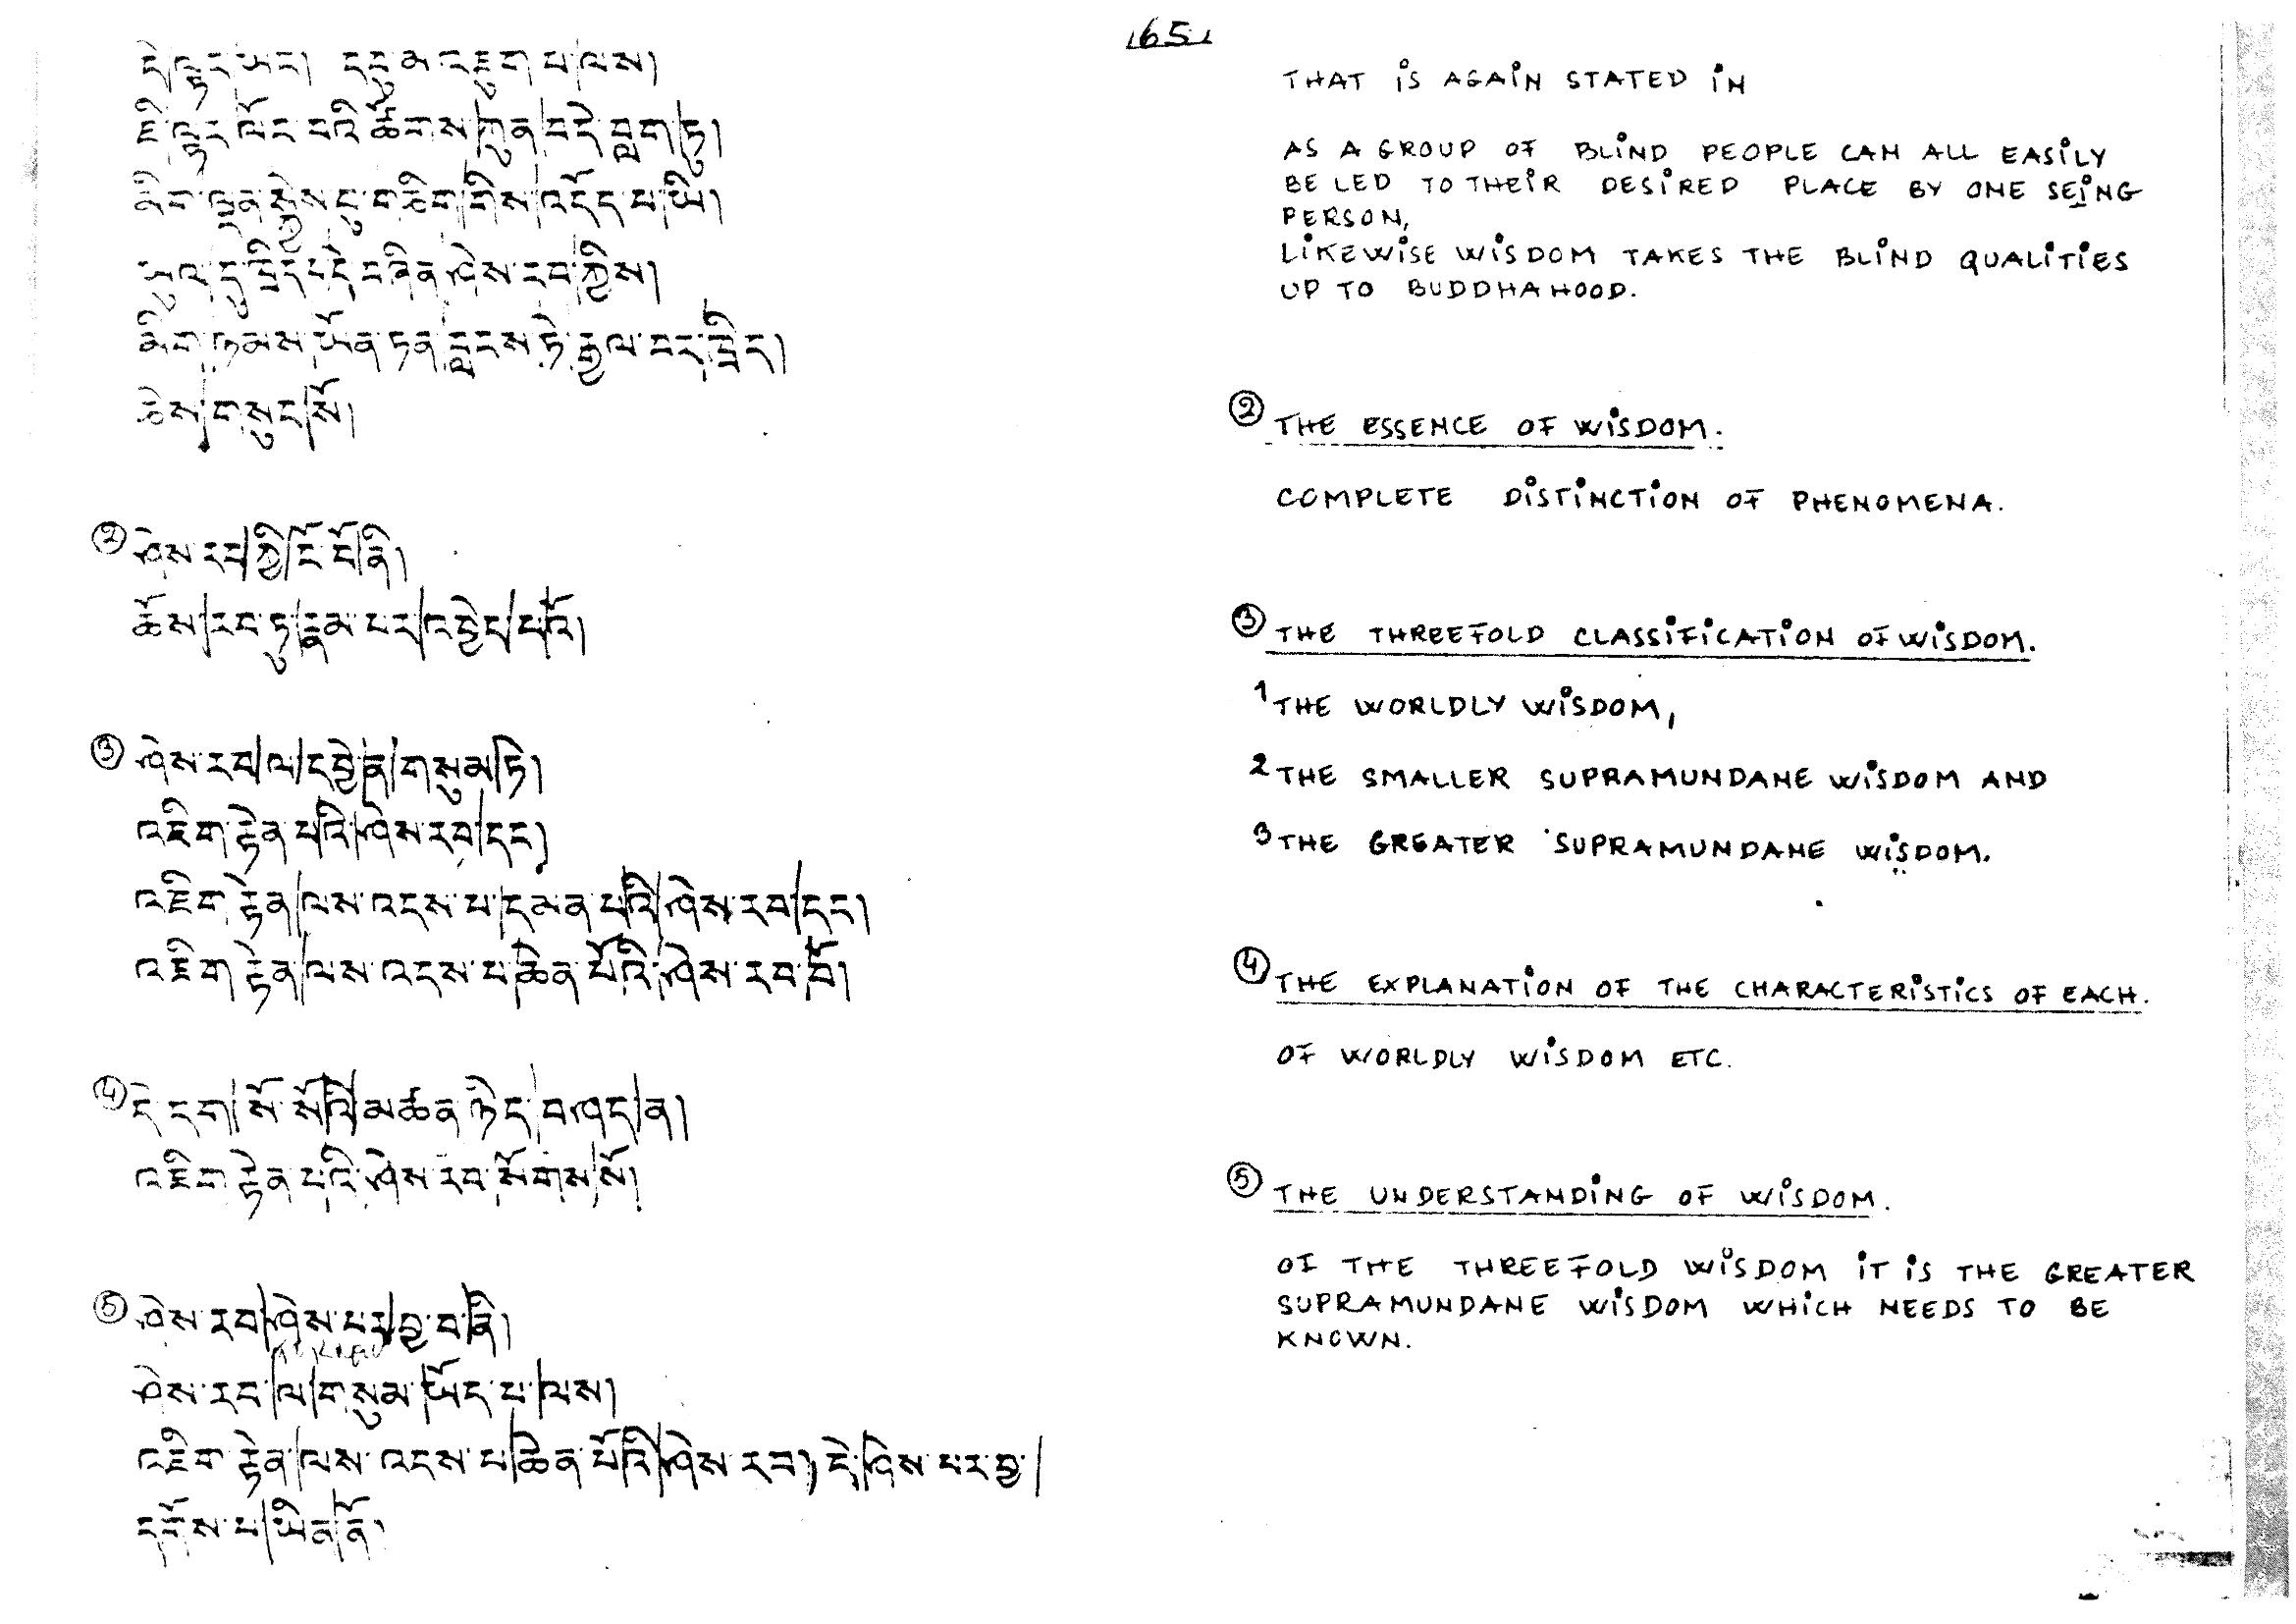 165
དེ་ལྟར་ཡང་། དབུ་མ་འཇུག་པ་ལས།
ཇི་ལྟར་ལོང་བའི་ཚོགས་ཀུན་བདེ་བླག་ཏུ།
མིག་ལྡན་སྐྱེས་བུ་གཅིག་གིས་འདོད་པ་ཡི།
ཡུལ་དུ་ཁྲིད་པ་དེ་བཞིན་ཤེས་རབ་ཀྱིས།
མིག་ཉམས་ཡོན་ཏན་བླངས་ཏེ་རྒྱལ་བར་ཁྲིད།
ཅེས་གསུངས་སོ།
② ཤེས་རབ་ཀྱི་ངོ་བོ་ནི།
ཆོས་རབ་ཏུ་རྣམ་པར་འབྱེད་པའོ།
③ ཤེས་རབ་ལ་དབྱེ་ན་གསུམ་ཏེ།
འཇིག་རྟེན་པའི་ཤེས་རབ་དང་།
འཇིག་རྟེན་ལས་འདས་པ་དམན་པའི་ཤེས་རབ་དང་།
འཇིག་རྟེན་ལས་འདས་པ་ཆེན་པོའི་ཤེས་རབ་བོ།
④ དེ་དག་སོ་སོའི་མཚན་ཉིད་བཤད་ན།
འཇིག་རྟེན་པའི་ཤེས་རབ་སོགས་སོ།
⑤ ཤེས་རབ་ཤེས་པར་བྱ་བ་ནི།
ཤེས་རབ་ལ་གསུམ་ཡོད་པ་ལས།
འཇིག་རྟེན་ལས་འདས་པ་ཆེན་པོའི་ཤེས་རབ། དེ་ཤེས་པར་བྱ་
དགོས་པ་ཡིན་ནོ།
THAT IS AGAIN STATED IN
AS A GROUP OF BLIND PEOPLE CAN ALL EASILY
BE LED TO THEIR DESIRED PLACE BY ONE SEING
PERSON,
LIKEWISE WISDOM TAKES THE BLIND QUALITIES
UP TO BUDDHAHOOD.
② THE ESSENCE OF WISDOM.
COMPLETE DISTINCTION OF PHENOMENA.
③ THE THREEFOLD CLASSIFICATION OF WISDOM.
1 THE WORLDLY WISDOM,
2 THE SMALLER SUPRAMUNDANE WISDOM AND
3 THE GREATER SUPRAMUNDANE WISDOM.
④ THE EXPLANATION OF THE CHARACTERISTICS OF EACH.
OF WORLDLY WISDOM ETC.
⑤ THE UNDERSTANDING OF WISDOM.
OF THE THREEFOLD WISDOM IT IS THE GREATER
SUPRAMUNDANE WISDOM WHICH NEEDS TO BE
KNOWN.